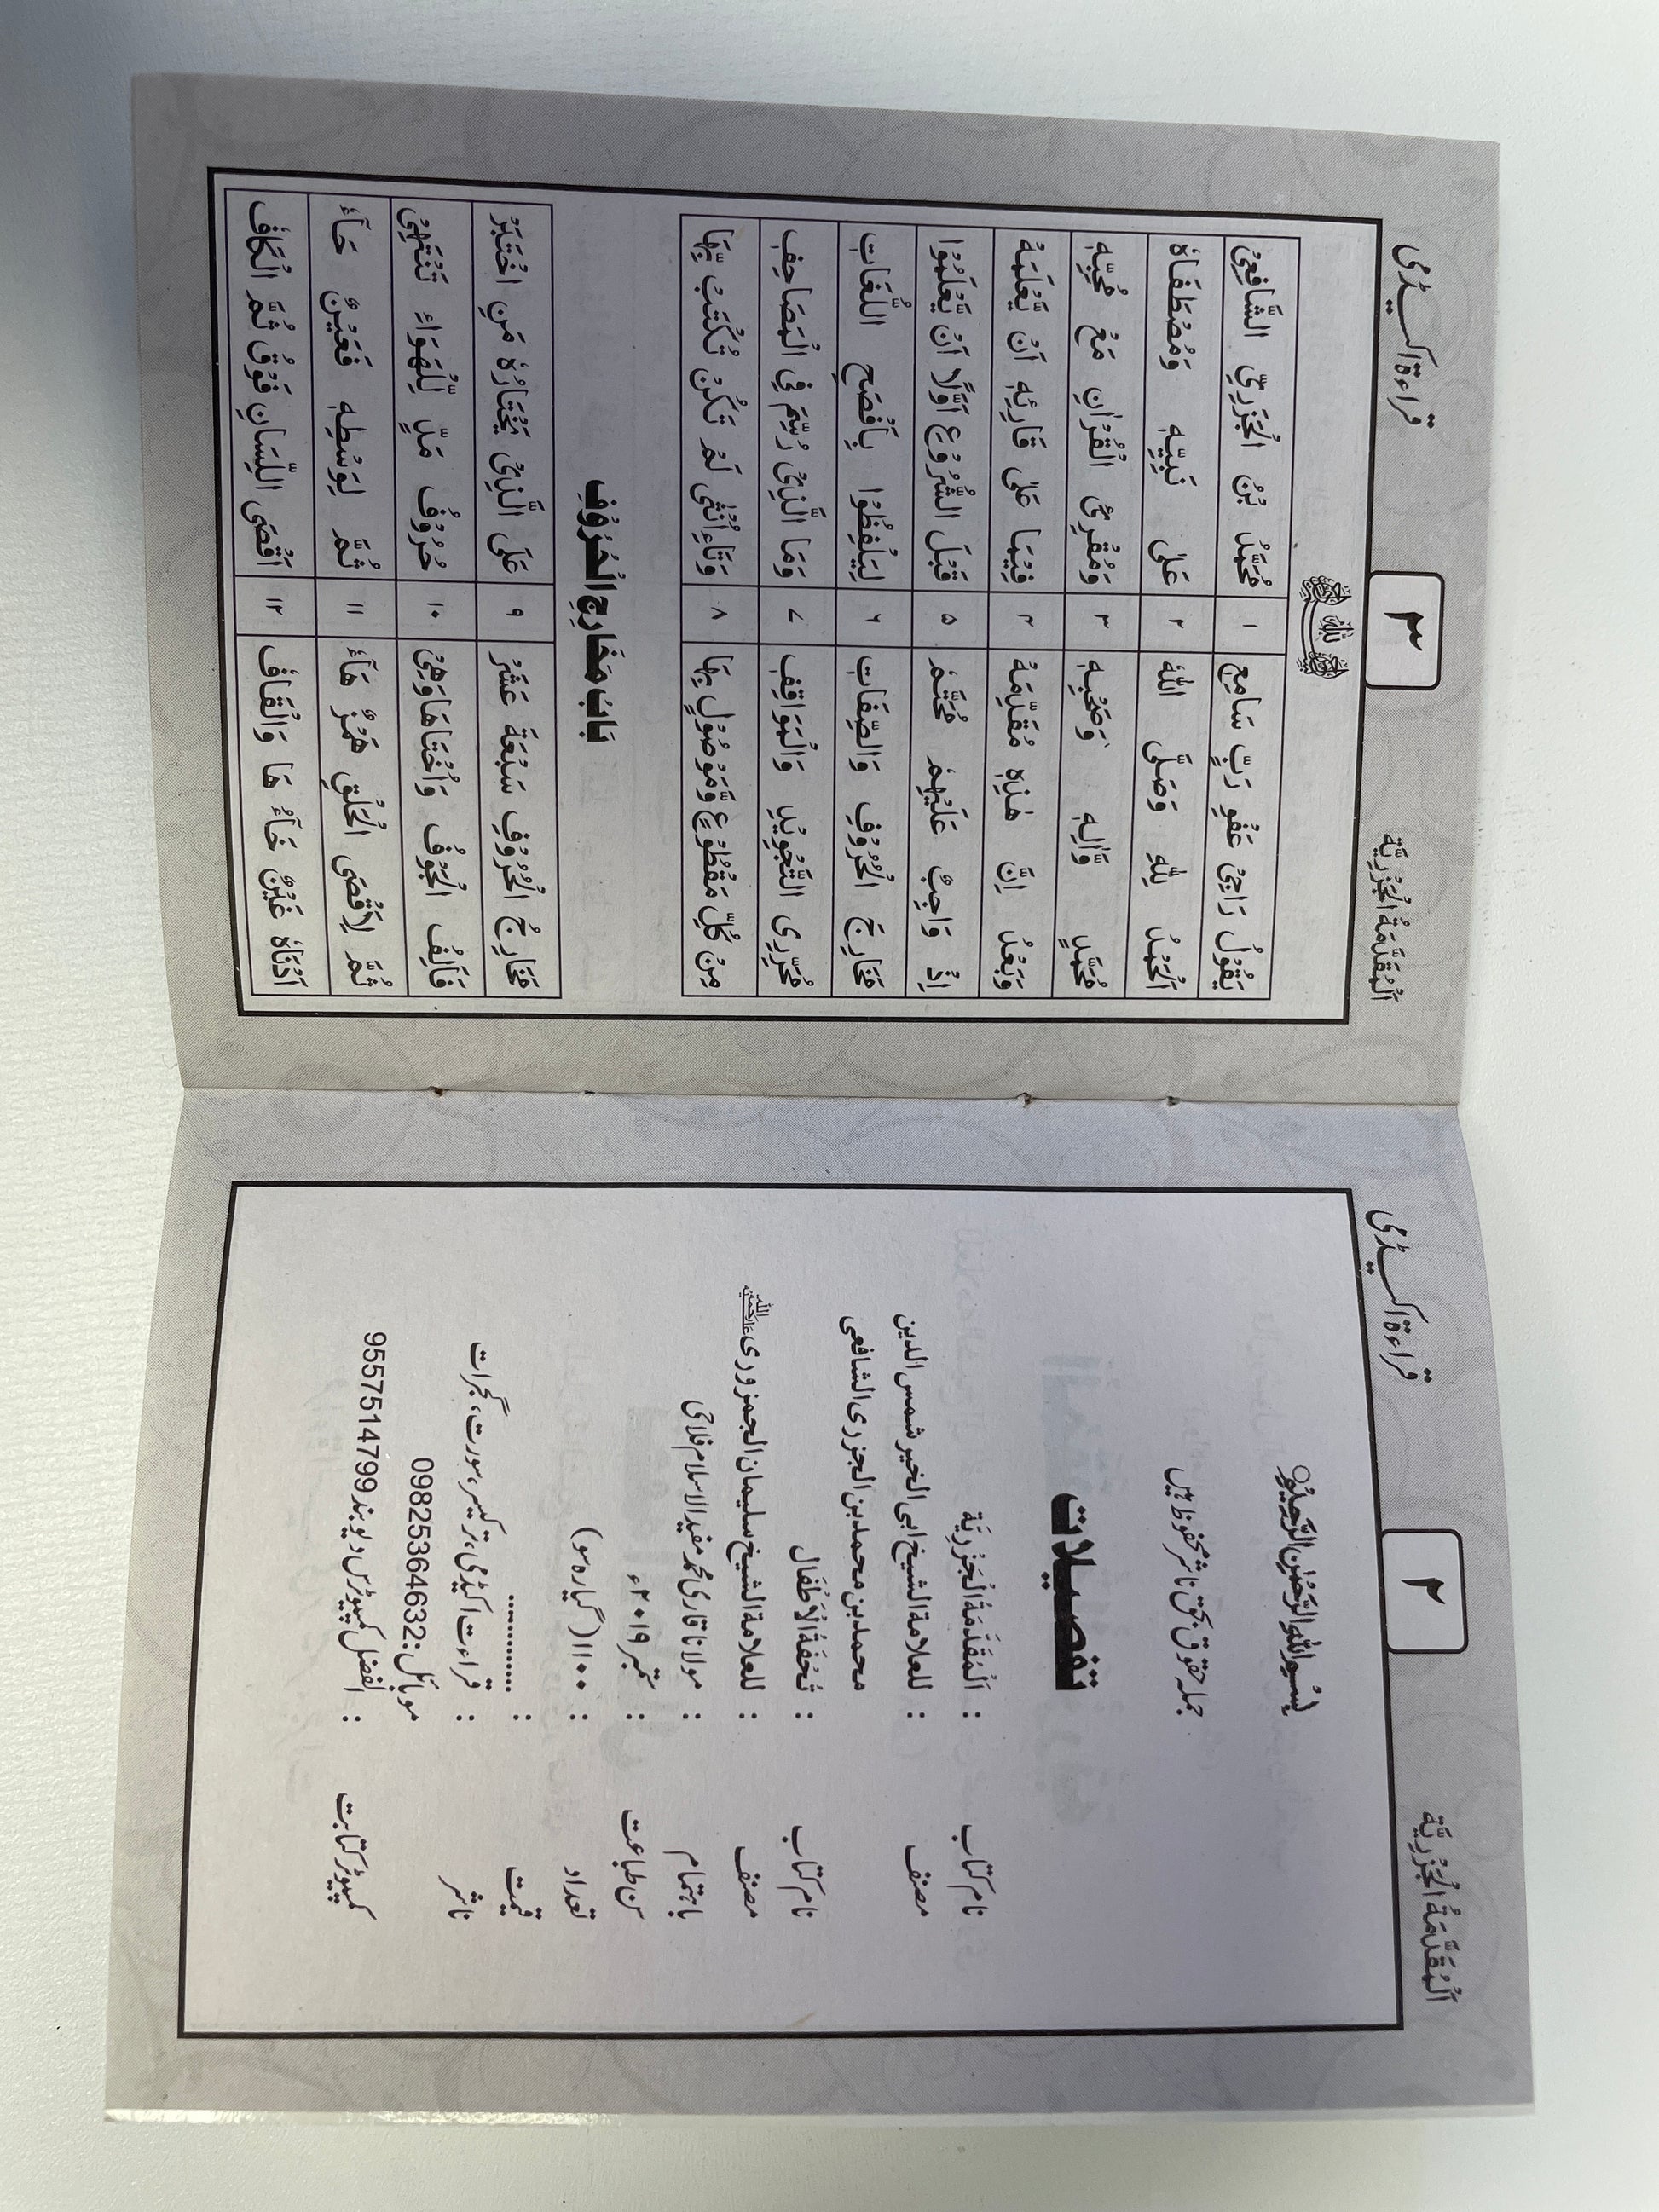 اَلْمُقَدَّمَةُ الْجَزْرِيَّة
۲
قراءۃ اکیڈمی
بِسْمِ اللهِ الرَّحْمٰنِ الرَّحِيْمِ
جملہ حقوق بحق ناشر محفوظ ہیں
تفصیلات
نام کتاب : اَلْمُقَدَّمَةُ الْجَزْرِيَّة
مصنف : للعلامة الشیخ ابی الخیر شمس الدین
محمد بن محمد بن الجزری الشافعی
نام کتاب : تُحْفَةُ الْاَطْفَال
مصنف : للعلامة الشیخ سلیمان الجمزوری رحمۃ اللہ علیہ
باہتمام : مولانا قاری محمد مفید الاسلام فلاحی
سن طباعت : ستمبر ۲۰۱۹ء
تعداد : ۱۱۰۰ (گیارہ سو)
قیمت : ............
ناشر : قراءت اکیڈمی، ترکیسر، سورت، گجرات
موبائل: 09825364632
کمپیوٹر کتابت : الفضل کمپیوٹرس دیوبند 9557514799
اَلْمُقَدَّمَةُ الْجَزْرِيَّة
۳
قراءۃ اکیڈمی
يَقُوْلُ رَاجِيْ عَفْوِ رَبٍّ سَامِعٖ ۱ مُحَمَّدُ بْنُ الْجَزَرِيِّ الشَّافِعِيْ
اَلْحَمْدُ لِلّٰهِ وَصَلَّى اللّٰهُ ۲ عَلٰى نَبِيِّهٖ وَمُصْطَفَاهُ
مُحَمَّدٍ وَّاٰلِهٖ وَصَحْبِهٖ ۳ وَمُقْرِئِ الْقُرْاٰنِ مَعْ مُحِبِّهٖ
وَبَعْدُ اِنَّ هٰذِهٖ مُقَدِّمَهْ ۴ فِيْمَا عَلٰى قَارِئِهٖ اَنْ يَّعْلَمَهْ
اِذْ وَاجِبٌ عَلَيْهِمْ مُحَتَّمْ ۵ قَبْلَ الشُّرُوْعِ اَوَّلًا اَنْ يَّعْلَمُوْا
مَخَارِجَ الْحُرُوْفِ وَالصِّفَاتِ ۶ لِيَلْفِظُوْا بِاَفْصَحِ اللُّغَاتِ
مُحَرِّرِى التَّجْوِيْدِ وَالْمَوَاقِفِ ۷ وَمَا الَّذِىْ رُسِّمَ فِى الْمَصَاحِفِ
مِنْ كُلِّ مَقْطُوْعٍ وَّمَوْصُوْلٍ بِهَا ۸ وَتَاءِ اُنْثٰى لَمْ تَكُنْ تُكْتَبْ بِّهَا
بَابُ مَخَارِجِ الْحُرُوْفِ
مَخَارِجُ الْحُرُوْفِ سَبْعَةَ عَشَرْ ۹ عَلَى الَّذِىْ يَخْتَارُهٗ مَنِ اخْتَبَرْ
فَاَلِفُ الْجَوْفُ وَاُخْتَاهَا وَهِىْ ۱۰ حُرُوْفُ مَدٍّ لِّلْهَوَاءِ تَنْتَهِىْ
ثُمَّ لِاَقْصَى الْحَلْقِ هَمْزٌ هَآءٌ ۱۱ ثُمَّ لِوَسْطِهٖ فَعَيْنٌ حَآءٌ
اَدْنَاهُ غَيْنٌ خَآءُهَا وَالْقَافُ ۱۲ اَقْصَى اللِّسَانِ فَوْقُ ثُمَّ الْكَافُ